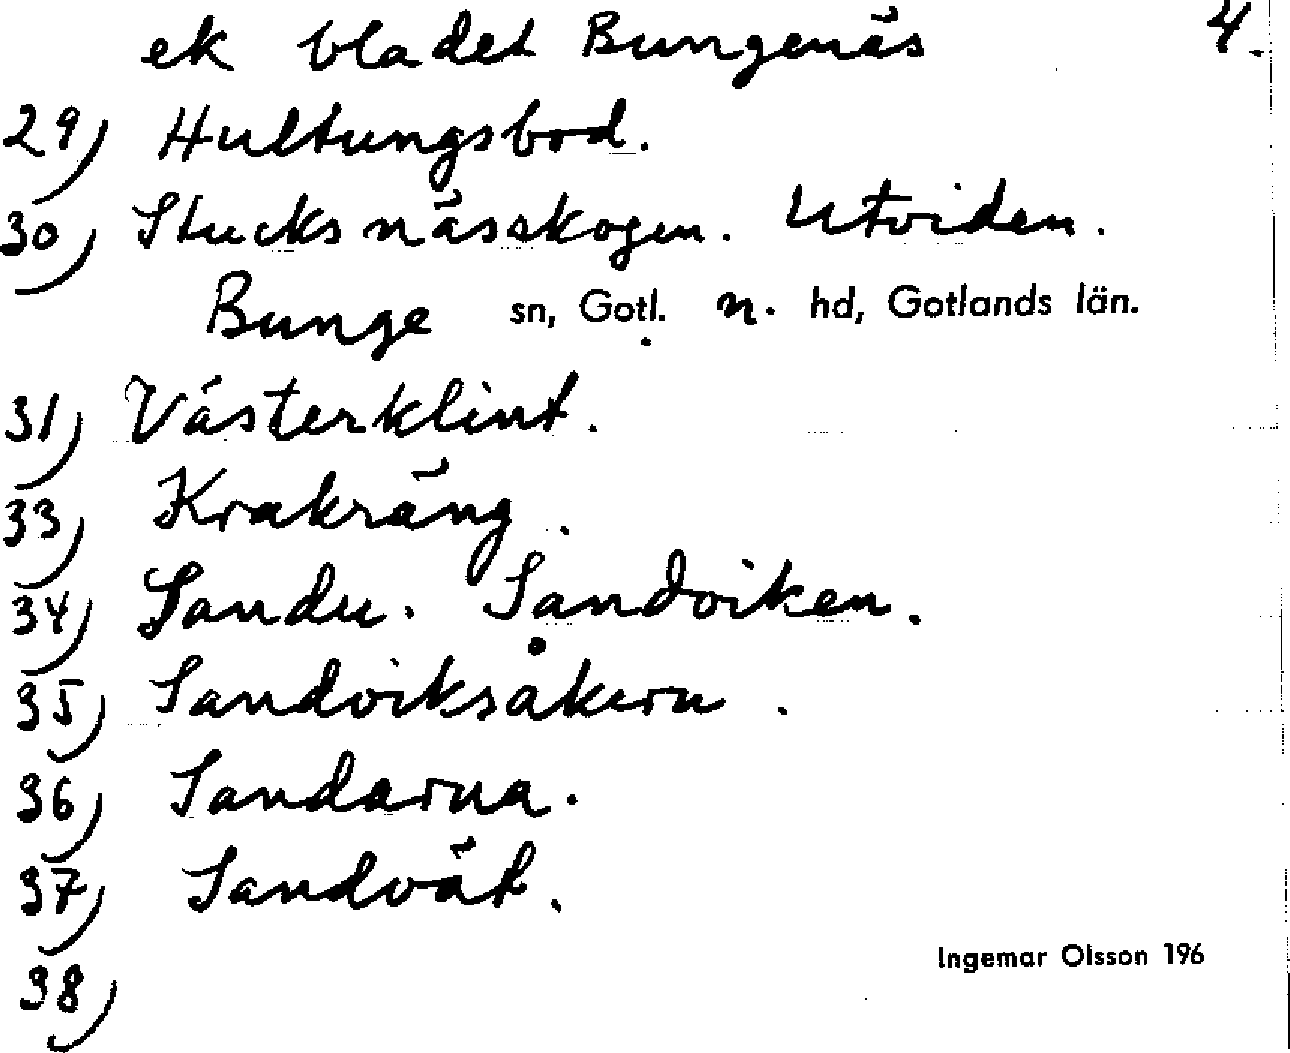 ek bladet Bungenäs 4.
29) Hultungsbod.
30) Stucksnässkogen. Utviden.
Bunge sn, Gotl. n. hd, Gotlands län.
31) Västerklint.
33) Krakräng.
34) Sandu. Sandviken.
35) Sandviksåkern.
36) Sandarna.
37) Sandvät.
Ingemar Olsson 196
38)